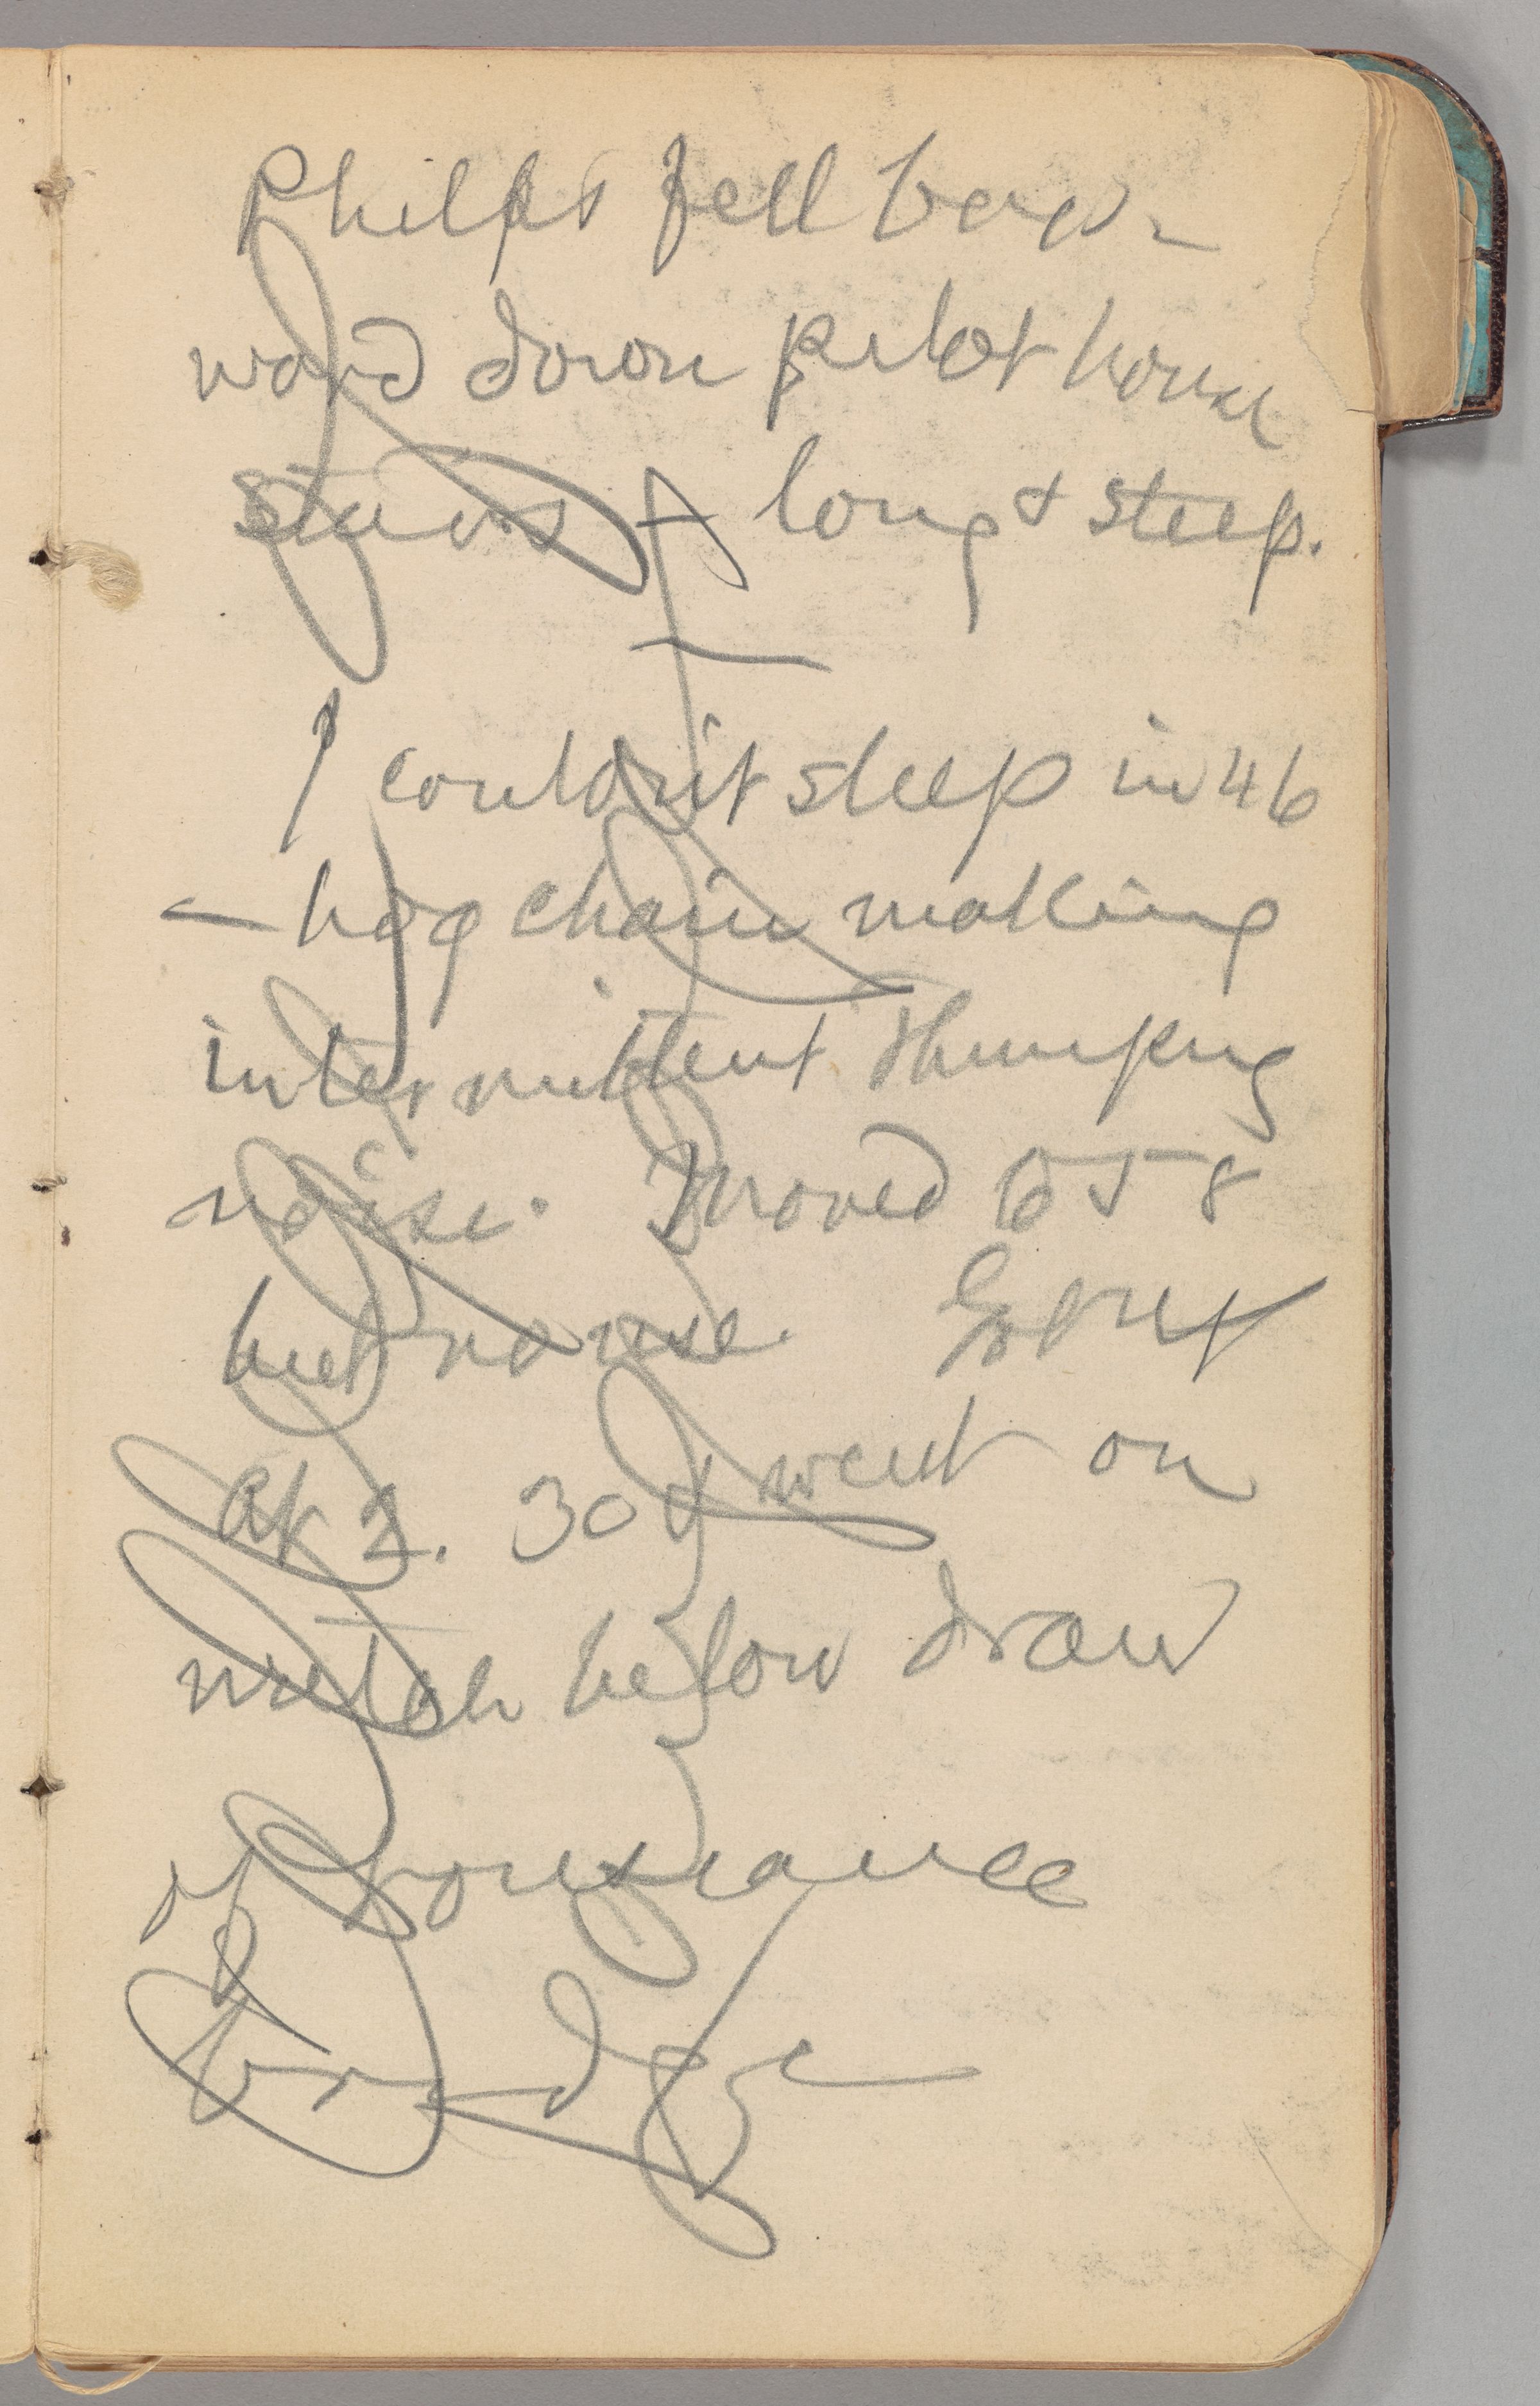 Phelps fell back-
ward down pilot house
stairs & long & steep.
I couldn't sleep in 46
— hog chain making
intermittent thumping
noise. Moved to 58
but no use. Got up
at 2.30 & went on
watch below draw
of
bridge